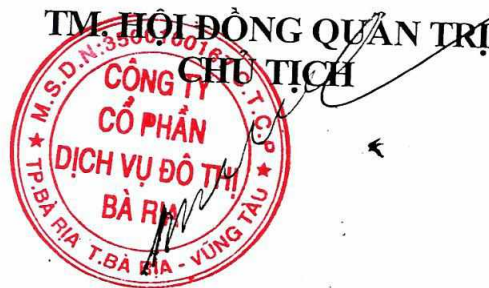 TM. HỘI ĐỒNG QUẢN TRỊ
CHỦ TỊCH
CÔNG TY
CỔ PHẦN
DỊCH VỤ ĐÔ THỊ
BÀ RỊA
TP.BÀ RỊA T.BÀ RỊA - VŨNG TÀU